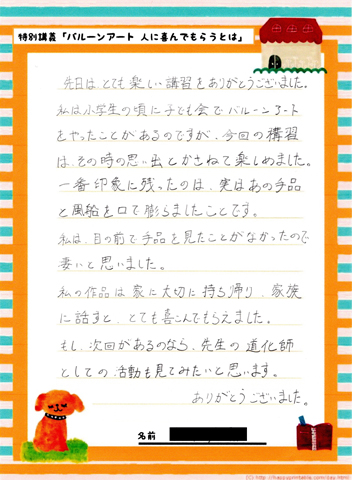 特別講義「バルーンアート 人に喜んでもらうとは」
先日は、とても楽しい講習をありがとうございました。
私は小学生の頃に子ども会でバルーンアート
をやったことがあるのですが、今回の講習
は、その時の思い出とかさねて楽しめました。
一番印象に残ったのは、実はあの手品
と風船を口で膨らましたことです。
私は、目の前で手品を見たことがなかったので
凄いと思いました。
私の作品は家に大切に持ち帰り、家族
に話すと、とても喜こんでもらえました。
もし、次回があるのなら、先生の道化師
としての活動も見てみたいと思います。
ありがとうございました。
名前